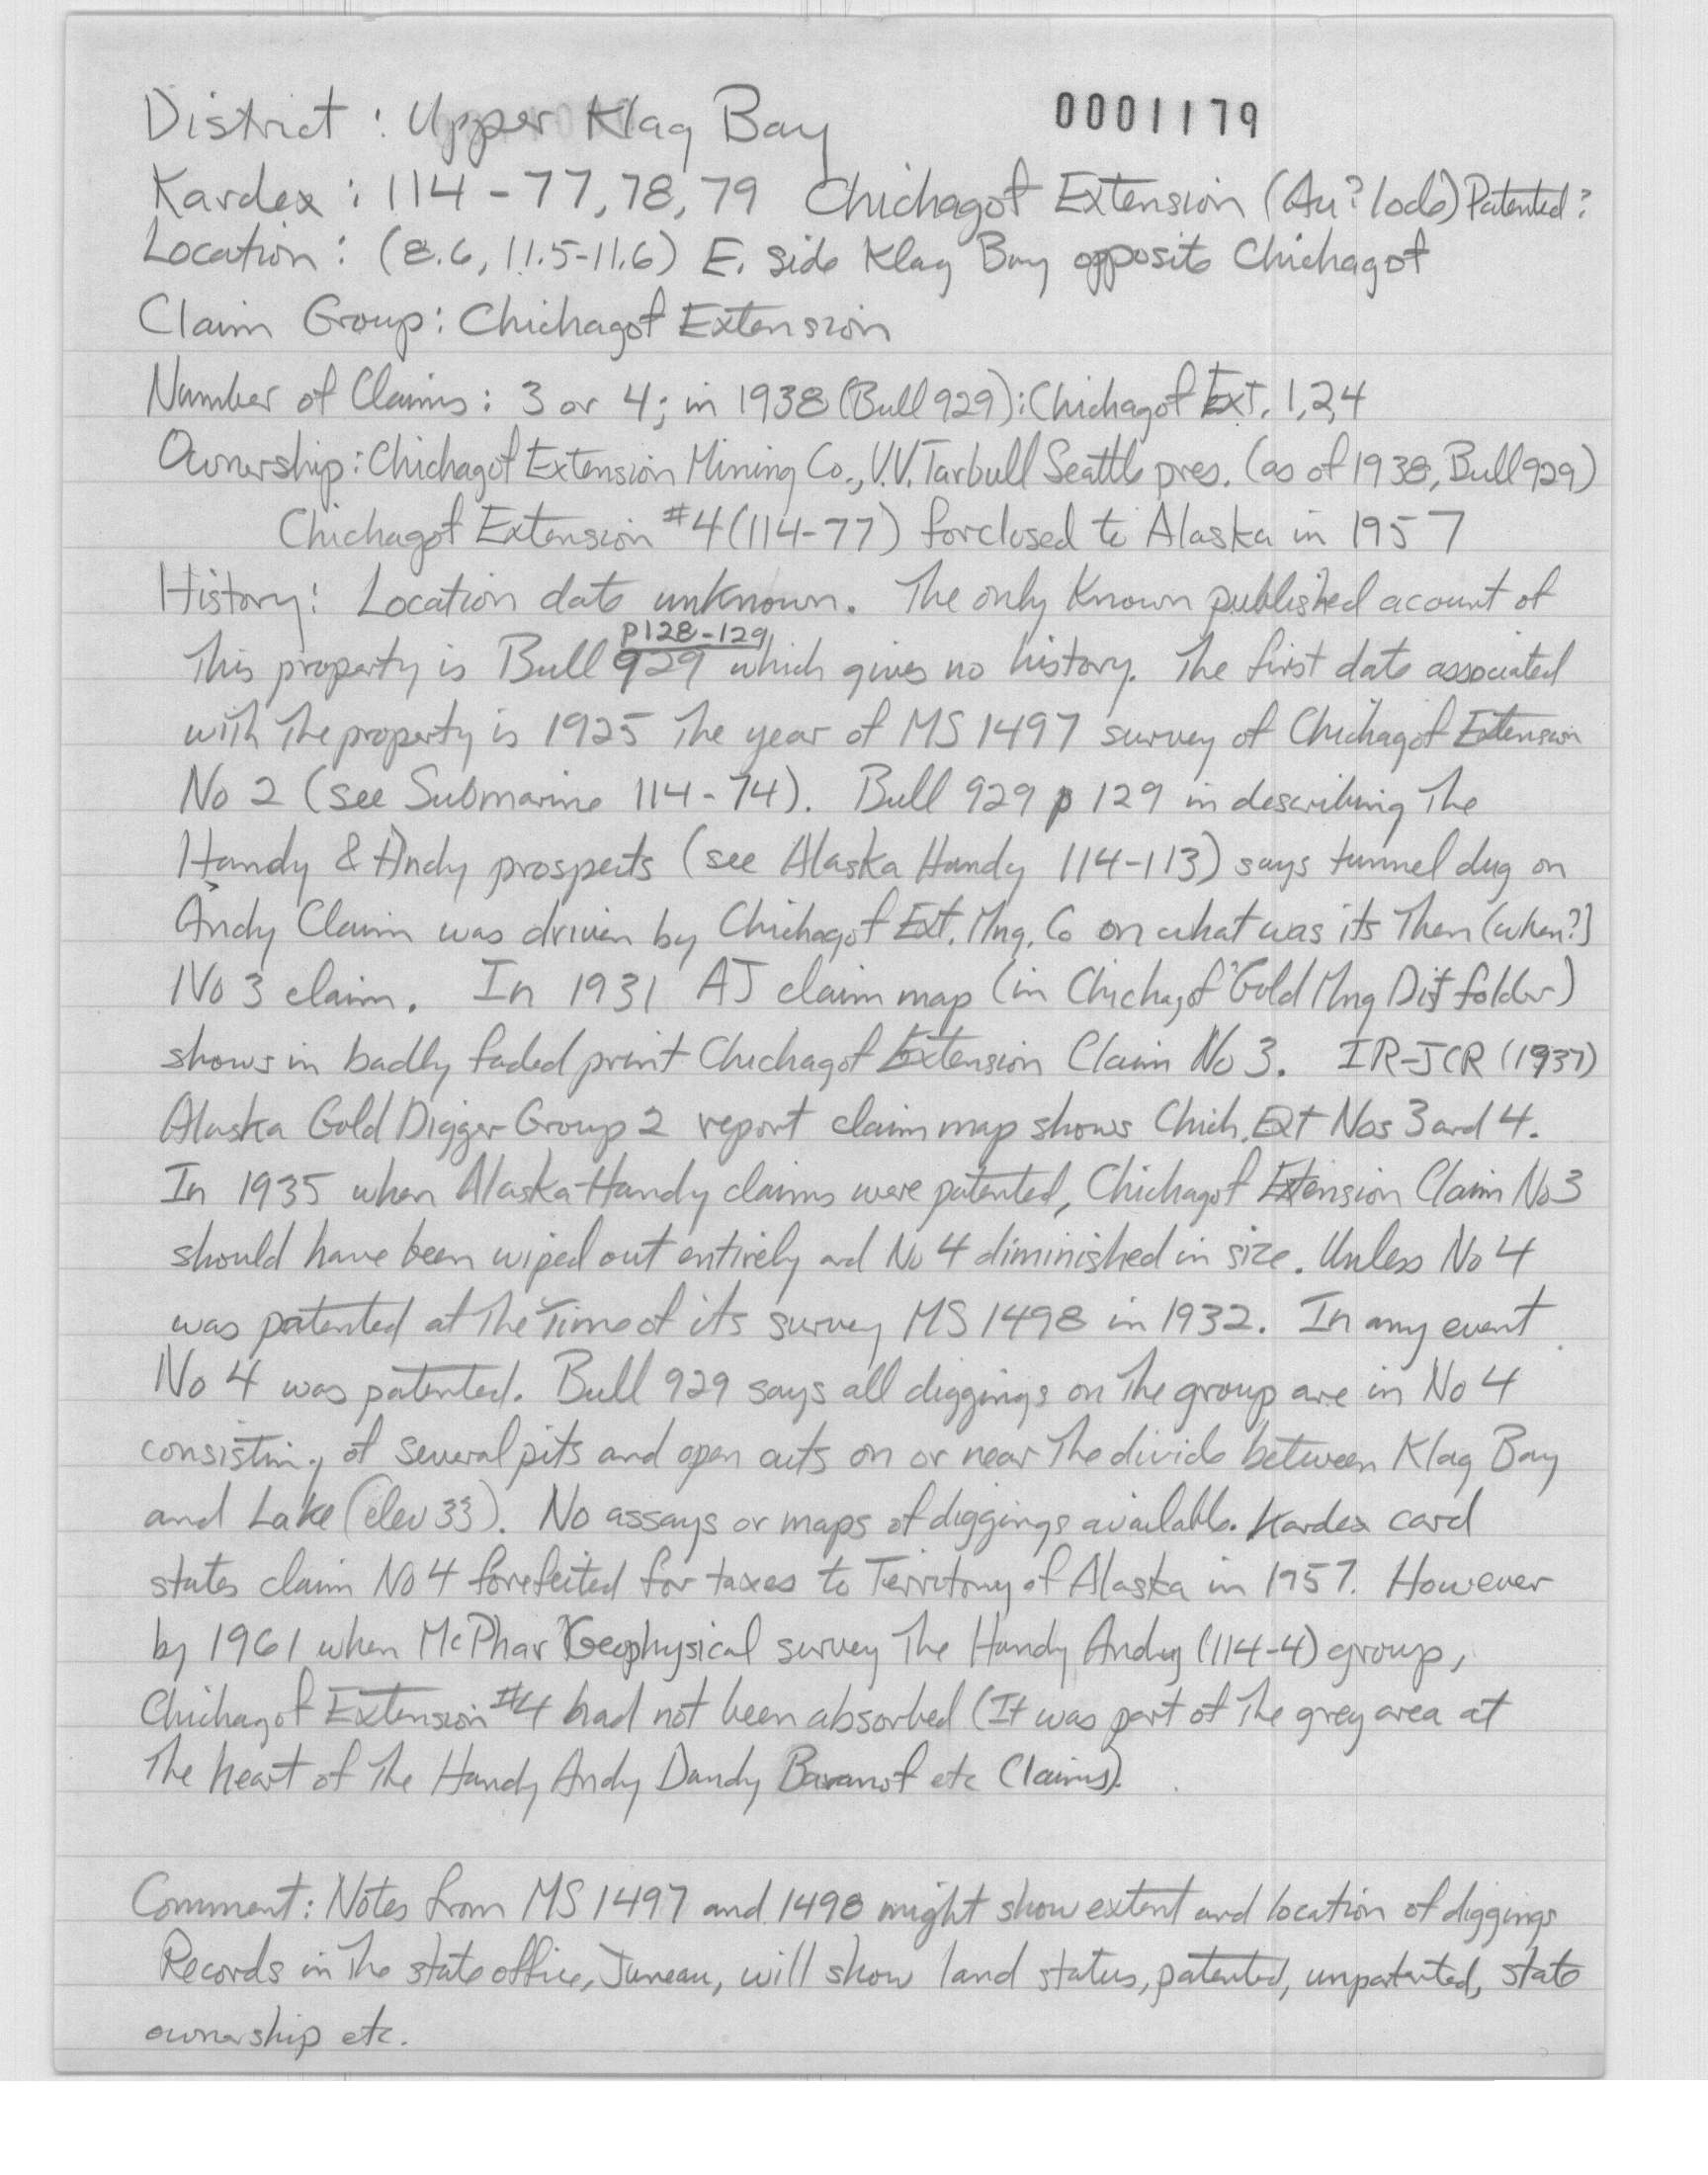 District : Upper Klag Bay 0001179
Kardex : 114-77, 78, 79 Chichagof Extension (Au? lode) Patented?
Location : (8.6, 11.5-11.6) E. side Klag Bay opposite Chichagof
Claim Group: Chichagof Extension
Number of Claims: 3 or 4; in 1938 (Bull 929): Chichagof Ext. 1,2,4
Ownership: Chichagof Extension Mining Co., V.V. Tarbull Seattle pres. (as of 1938, Bull 929)
Chichagof Extension #4 (114-77) forclosed to Alaska in 1957
History: Location date unknown. The only known published acount of
p128-129
This property is Bull 929 which gives no history. The first date associated
with the property is 1925 the year of MS 1497 survey of Chichagof Extension
No 2 (see Submarine 114-74). Bull 929 p 129 in describing the
Handy & Andy prospects (see Alaska Handy 114-113) says tunnel dug on
Andy Claim was driven by Chichagof Ext. Mng. Co on what was its then (when?)
No 3 claim. In 1931 AJ claim map (in Chichagof Gold Mng Dist folder)
shows in badly faded print Chichagof Extension Claim No 3. IR-JCR (1937)
Alaska Gold Digger Group 2 report claim map shows Chich. Ext Nos 3 and 4.
In 1935 when Alaska Handy claims were patented, Chichagof Extension Claim No 3
should have been wiped out entirely and No 4 diminished in size. Unless No 4
was patented at the time of its survey MS 1498 in 1932. In any event
No 4 was patented. Bull 929 says all diggings on the group are in No 4
consisting of several pits and open cuts on or near the divide between Klag Bay
and Lake (elev 33). No assays or maps of diggings available. Kardex card
states claim No 4 forefeited for taxes to Territory of Alaska in 1957. However
by 1961 when McPhar Geophysical survey the Handy Andy (114-4) group,
Chichagof Extension #4 had not been absorbed (It was part of the grey area at
the heart of the Handy Andy Dandy Baranof etc Claims).
Comment: Notes from MS 1497 and 1498 might show extent and location of diggings
Records in the state office, Juneau, will show land status, patented, unpatented, state
ownership etc.